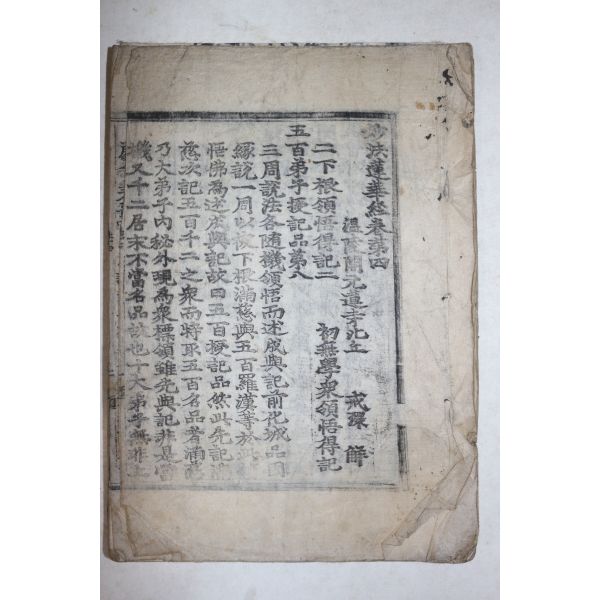 妙法蓮華經卷第四
溫陵開元蓮寺比丘 戒環 解
二下根領悟得記二 初無學衆領悟得記
五百弟子授記品第八
三周說法各隨機領悟而述成與記前化城品因
緣說一周以後下根滿慈與五百羅漢等於此領
悟佛爲述成與記故曰五百授記品然此先記滿
慈次記五百千二之衆而特取五百名品者滿慈
乃大弟子內秘外現爲衆標領雖先與記非是當
機又千二居末不當名品故也十大弟子無非上